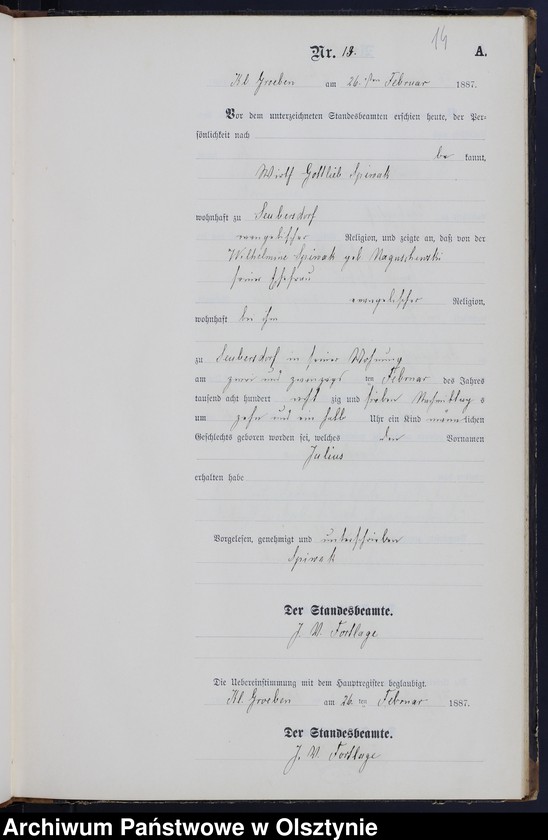 14
Nr. 13. A.
Kl. Groeben am 26 ten Februar 1887.
Vor dem unterzeichneten Standesbeamten erschien heute, der Per-
sönlichkeit nach
be kannt,
Wirth Gottlieb Spiwak
wohnhaft zu Seubersdorf
evangelischer Religion, und zeigte an, daß von der
Wilhelmine Spiwak geb. Naguschewski
seiner Ehefrau
evangelischer Religion,
wohnhaft bei ihm
zu Seubersdorf in seiner Wohnung
am zwei und zwanzigs ten Februar des Jahres
tausend acht hundert acht zig und sieben Nachmittag s
um zehn und ein halb Uhr ein Kind männ lichen
Geschlechts geboren worden sei, welches den Vornamen
Julius
erhalten habe
Vorgelesen, genehmigt und unterschrieben
Spiwak
Der Standesbeamte.
J. V. Fortlage
Die Uebereinstimmung mit dem Hauptregister beglaubigt.
Kl. Groeben am 26. ten Februar 1887.
Der Standesbeamte.
J. V. Fortlage
Archiwum Państwowe w Olsztynie